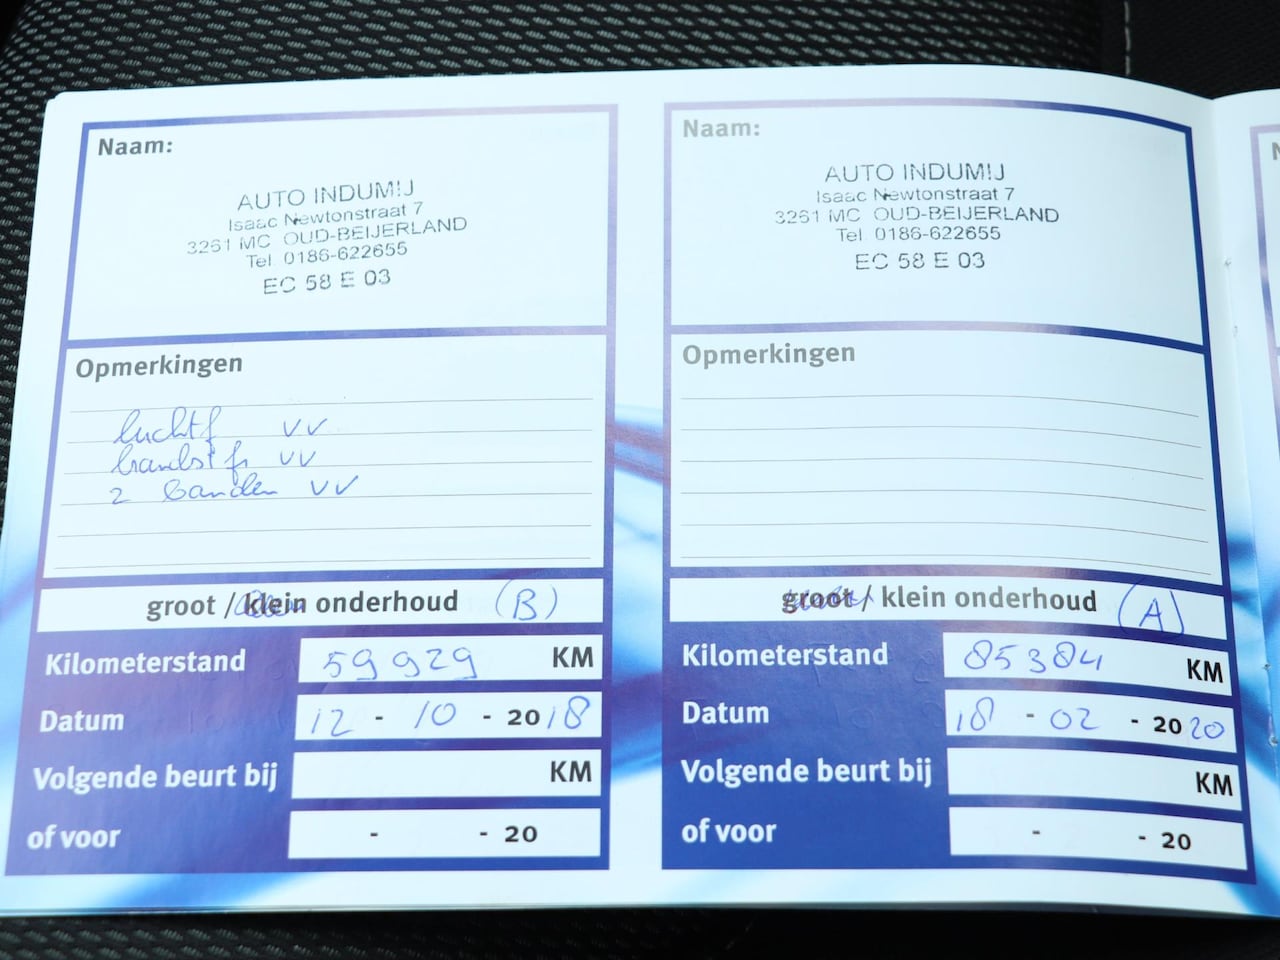 Naam:
AUTO INDUMIJ
Isaac Newtonstraat 7
3261 MC OUD-BEIJERLAND
Tel. 0186-622655
EC 58 E 03
Opmerkingen
luchtf vv
brandstf vv
2 banden vv
groot / klein onderhoud (B)
Kilometerstand 59929 KM
Datum 12 - 10 - 2018
Volgende beurt bij KM
of voor - - 20
Naam:
AUTO INDUMIJ
Isaac Newtonstraat 7
3261 MC OUD-BEIJERLAND
Tel. 0186-622655
EC 58 E 03
Opmerkingen
groot / klein onderhoud (A)
Kilometerstand 85384 KM
Datum 18 - 02 - 2020
Volgende beurt bij KM
of voor - - 20